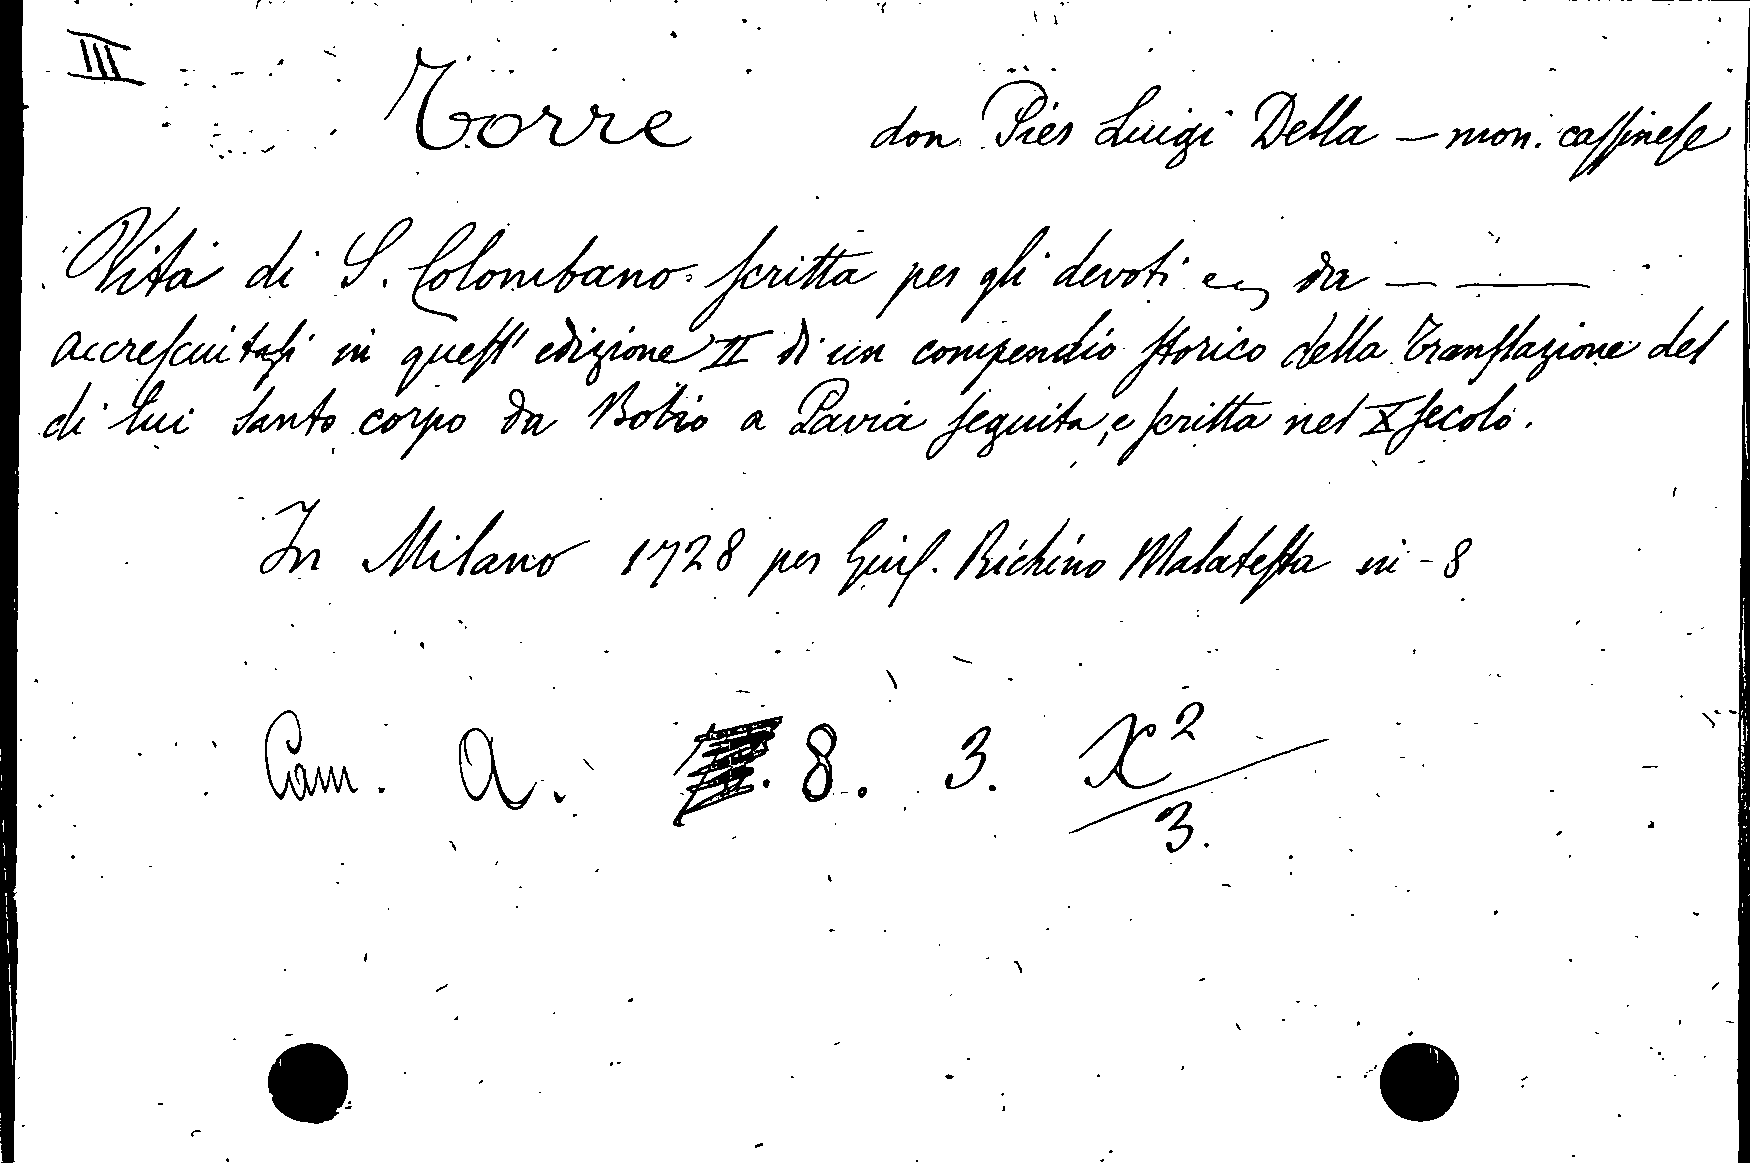 III
Torre don Pier Luigi Della — mon. caſſineſe
Vita di S. Colombano ſcritta per gli devoti da — ——
accreſciutaſi in queſt' edizione II di un compendio ſtorico della Tranſlazione del
di lui santo corpo da Bobio a Pavia ſeguita, e ſcritta nel X ſecolo.
In Milano 1728 per Giuſ. Richino Malateſta in - 8
Cam. A. 8. 3. X²/3.